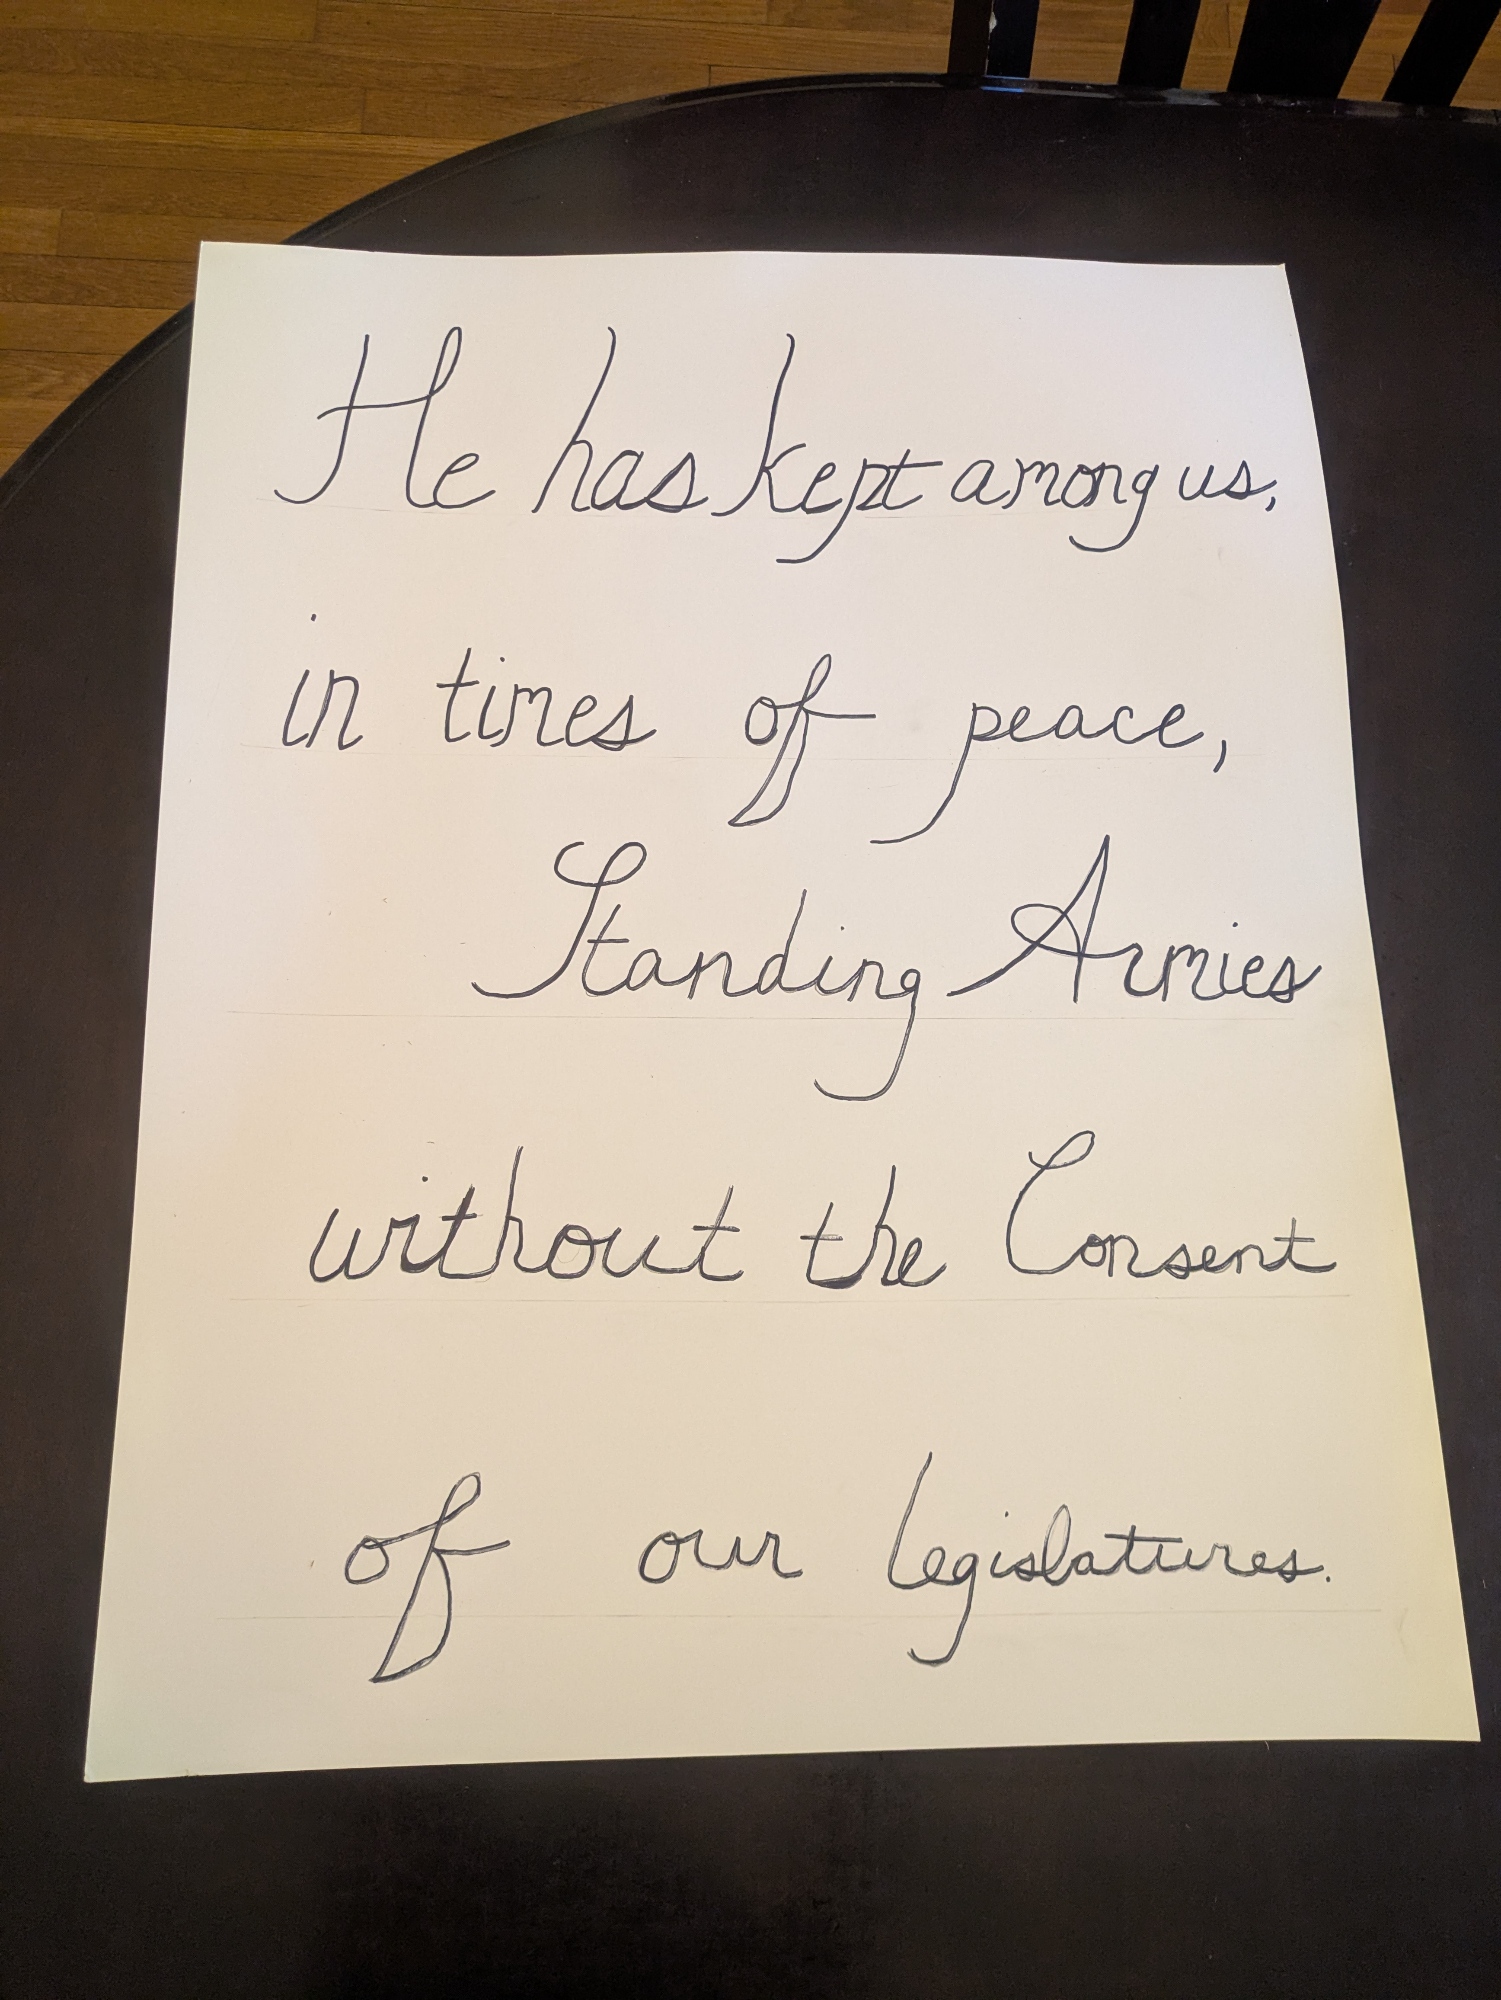 He has kept among us,
in times of peace,
Standing Armies
without the Consent
of our legislatures.